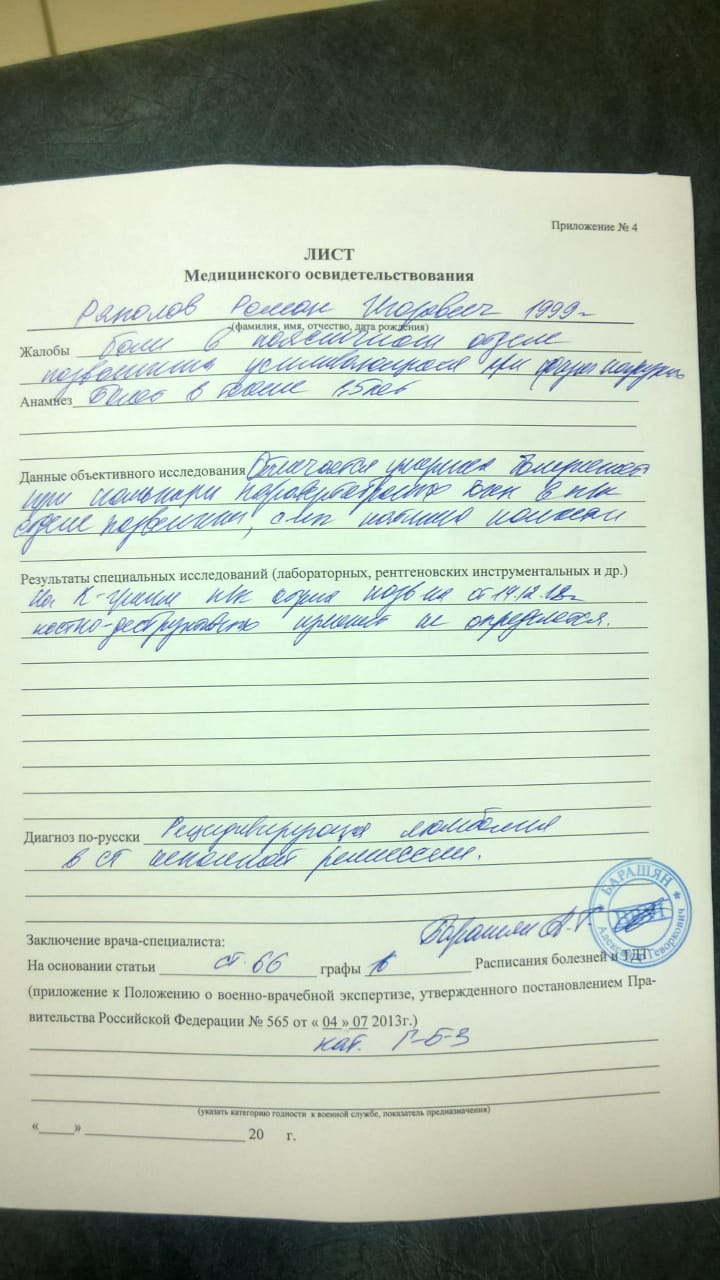 Приложение № 4
ЛИСТ
Медицинского освидетельствования
Роман Игоревич 1999г
(фамилия, имя, отчество, дата рождения)
Жалобы Боли в поясничном отделе
позвоночника усиливающиеся при физ. нагрузке
Анамнез Болеет в течение 1,5 лет
Данные объективного исследования Отмечается умеренная болезненность
при пальпации паравертебрально в п/к
отделе позвоночника,
Результаты специальных исследований (лабораторных, рентгеновских инструментальных и др.)
На R-грамме п/к отдела позв-ка от 14.12.18г
костно-деструктивных изменений не определяется.
Диагноз по-русски Рецидивирующая люмбалгия
в ст неполной ремиссии.
Барашян А.Г.
БАРАШЯН
ВРАЧ
Александр Геворкович
Заключение врача-специалиста:
На основании статьи ст. 66 графы Расписания болезней и ТДТ
(приложение к Положению о военно-врачебной экспертизе, утвержденного постановлением Пра-
вительства Российской Федерации № 565 от « 04 » 07 2013г.)
кат.
(указать категорию годности к военной службе, показатель предназначения)
«_____» ____________________ 20 г.